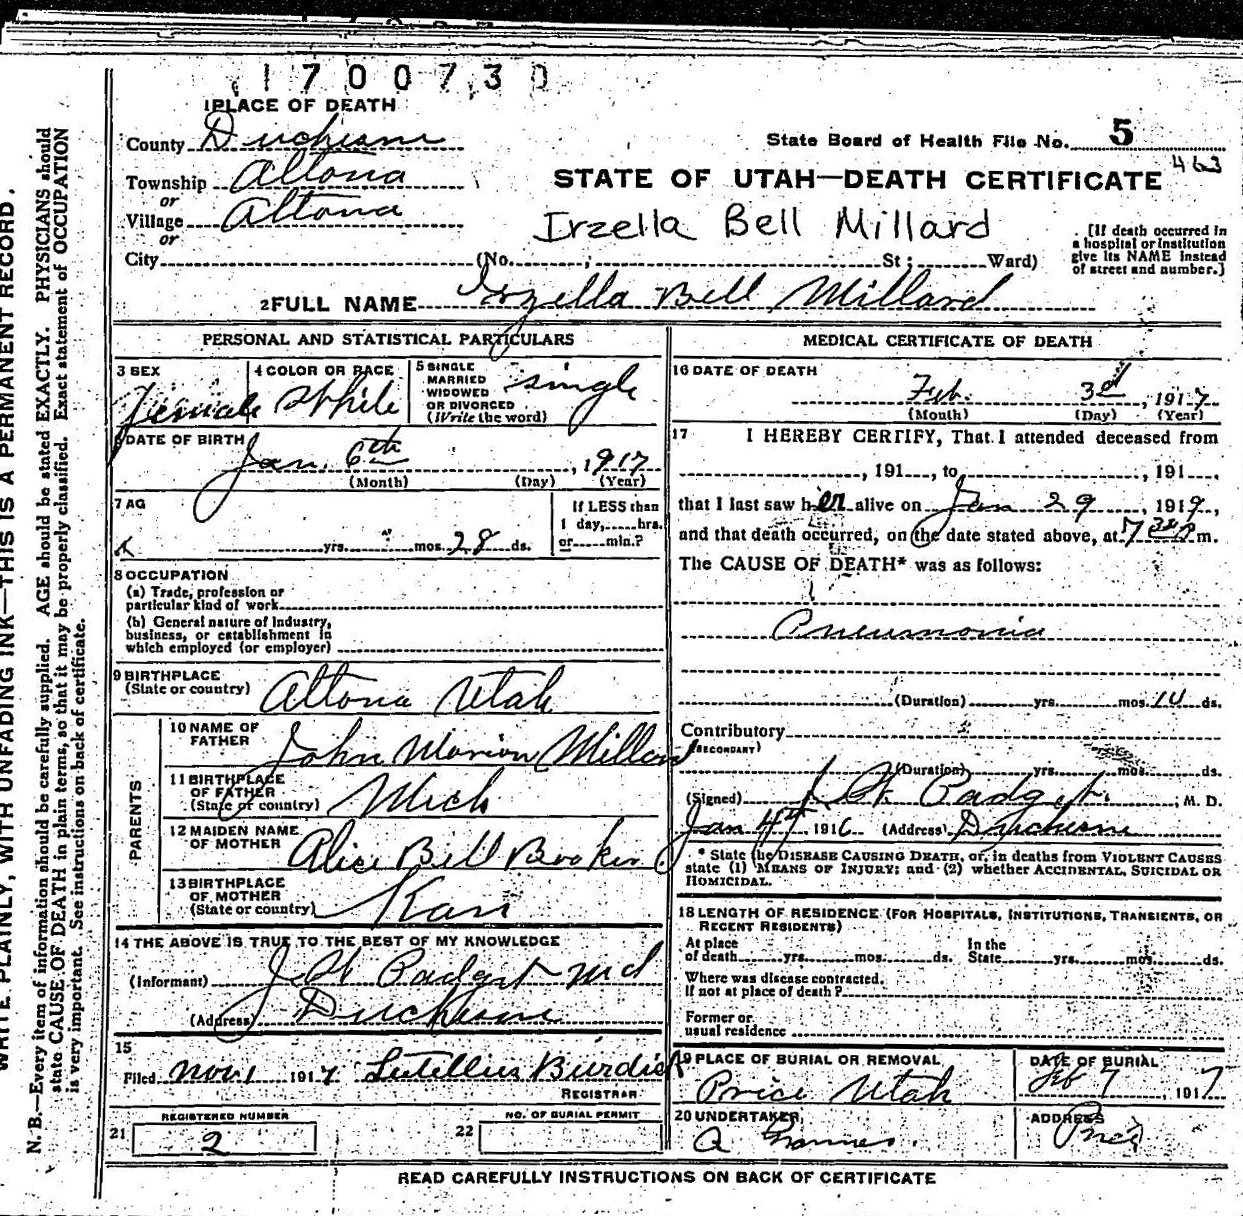 1700730
1 PLACE OF DEATH
County Duchesne
State Board of Health File No. 5
463
Township Altona
or
Village Altona
or
STATE OF UTAH—DEATH CERTIFICATE
Irzella Bell Millard
[If death occurred in a hospital or institution give its NAME instead of street and number.]
City (No. ; St ; Ward)
2 FULL NAME Irzella Bell Millard
PERSONAL AND STATISTICAL PARTICULARS
3 SEX Female
4 COLOR OR RACE White
5 SINGLE MARRIED WIDOWED OR DIVORCED (Write the word) Single
6 DATE OF BIRTH
Jan. 6th, 1917
(Month) (Day) (Year)
7 AG
yrs. mos. 28 ds.
If LESS than
1 day, hrs.
or min.?
8 OCCUPATION
(a) Trade, profession or
particular kind of work
(b) General nature of Industry,
business, or establishment in
which employed (or employer)
9 BIRTHPLACE
(State or country) Altona Utah
PARENTS
10 NAME OF FATHER John Marion Millard
11 BIRTHPLACE OF FATHER (State or country) Mich
12 MAIDEN NAME OF MOTHER Alice Bell
13 BIRTHPLACE OF MOTHER (State or country) Kan
14 THE ABOVE IS TRUE TO THE BEST OF MY KNOWLEDGE
(Informant) J W Padget md
(Address) Duchesne
15
Filed Nov 1 1917 Burdick
REGISTRAR
REGISTERED NUMBER
21 2
NO. OF BURIAL PERMIT
22
MEDICAL CERTIFICATE OF DEATH
16 DATE OF DEATH
Feb. 3d, 1917
(Month) (Day) (Year)
17 I HEREBY CERTIFY, That I attended deceased from
, 191 , to , 191 ,
that I last saw her alive on Jan 29, 1917,
and that death occurred, on the date stated above, at 7 m.
The CAUSE OF DEATH* was as follows:
Pneumonia
(Duration) yrs. mos. 10 ds.
Contributory
(SECONDARY)
(Duration) yrs. mos. ds.
(Signed) J W Padget ; M. D.
Jan 1916 (Address) Duchesne
* State the DISEASE CAUSING DEATH, or, in deaths from VIOLENT CAUSES
state (1) MEANS OF INJURY; and (2) whether ACCIDENTAL, SUICIDAL OR
HOMICIDAL.
18 LENGTH OF RESIDENCE (FOR HOSPITALS, INSTITUTIONS, TRANSIENTS, OR
RECENT RESIDENTS)
At place In the
of death yrs. mos. ds. State yrs. mos. ds.
Where was disease contracted,
If not at place of death?
Former or
usual residence
19 PLACE OF BURIAL OR REMOVAL
Price Utah
DATE OF BURIAL
Feb 7, 1917
20 UNDERTAKER
ADDRESS
Price
READ CAREFULLY INSTRUCTIONS ON BACK OF CERTIFICATE
WRITE PLAINLY, WITH UNFADING INK—THIS IS A PERMANENT RECORD.
N. B.—Every item of information should be carefully supplied. AGE should be stated EXACTLY. PHYSICIANS should
state CAUSE OF DEATH in plain terms, so that it may be properly classified. Exact statement of OCCUPATION
is very important. See instructions on back of certificate.